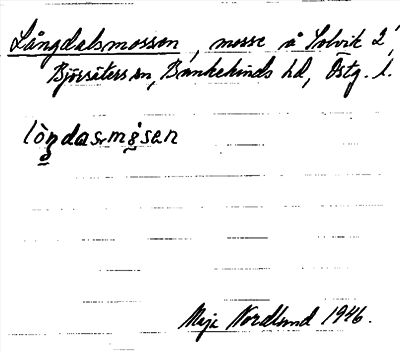 Långdalsmossen, mosse å Solvik 2¹,
Björsäters sn, Bankekinds hd, Östg. l.
löŋdasmåsen
Maja Nordlund 1946.